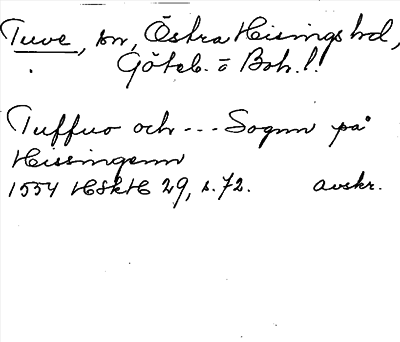 Tuve, sn, Östra Hisings hd,
Göteb. o Boh. l.
Tuffuo och --- Sognn på
Hissingenn
1554 HSkH 29, s. 72. avskr.